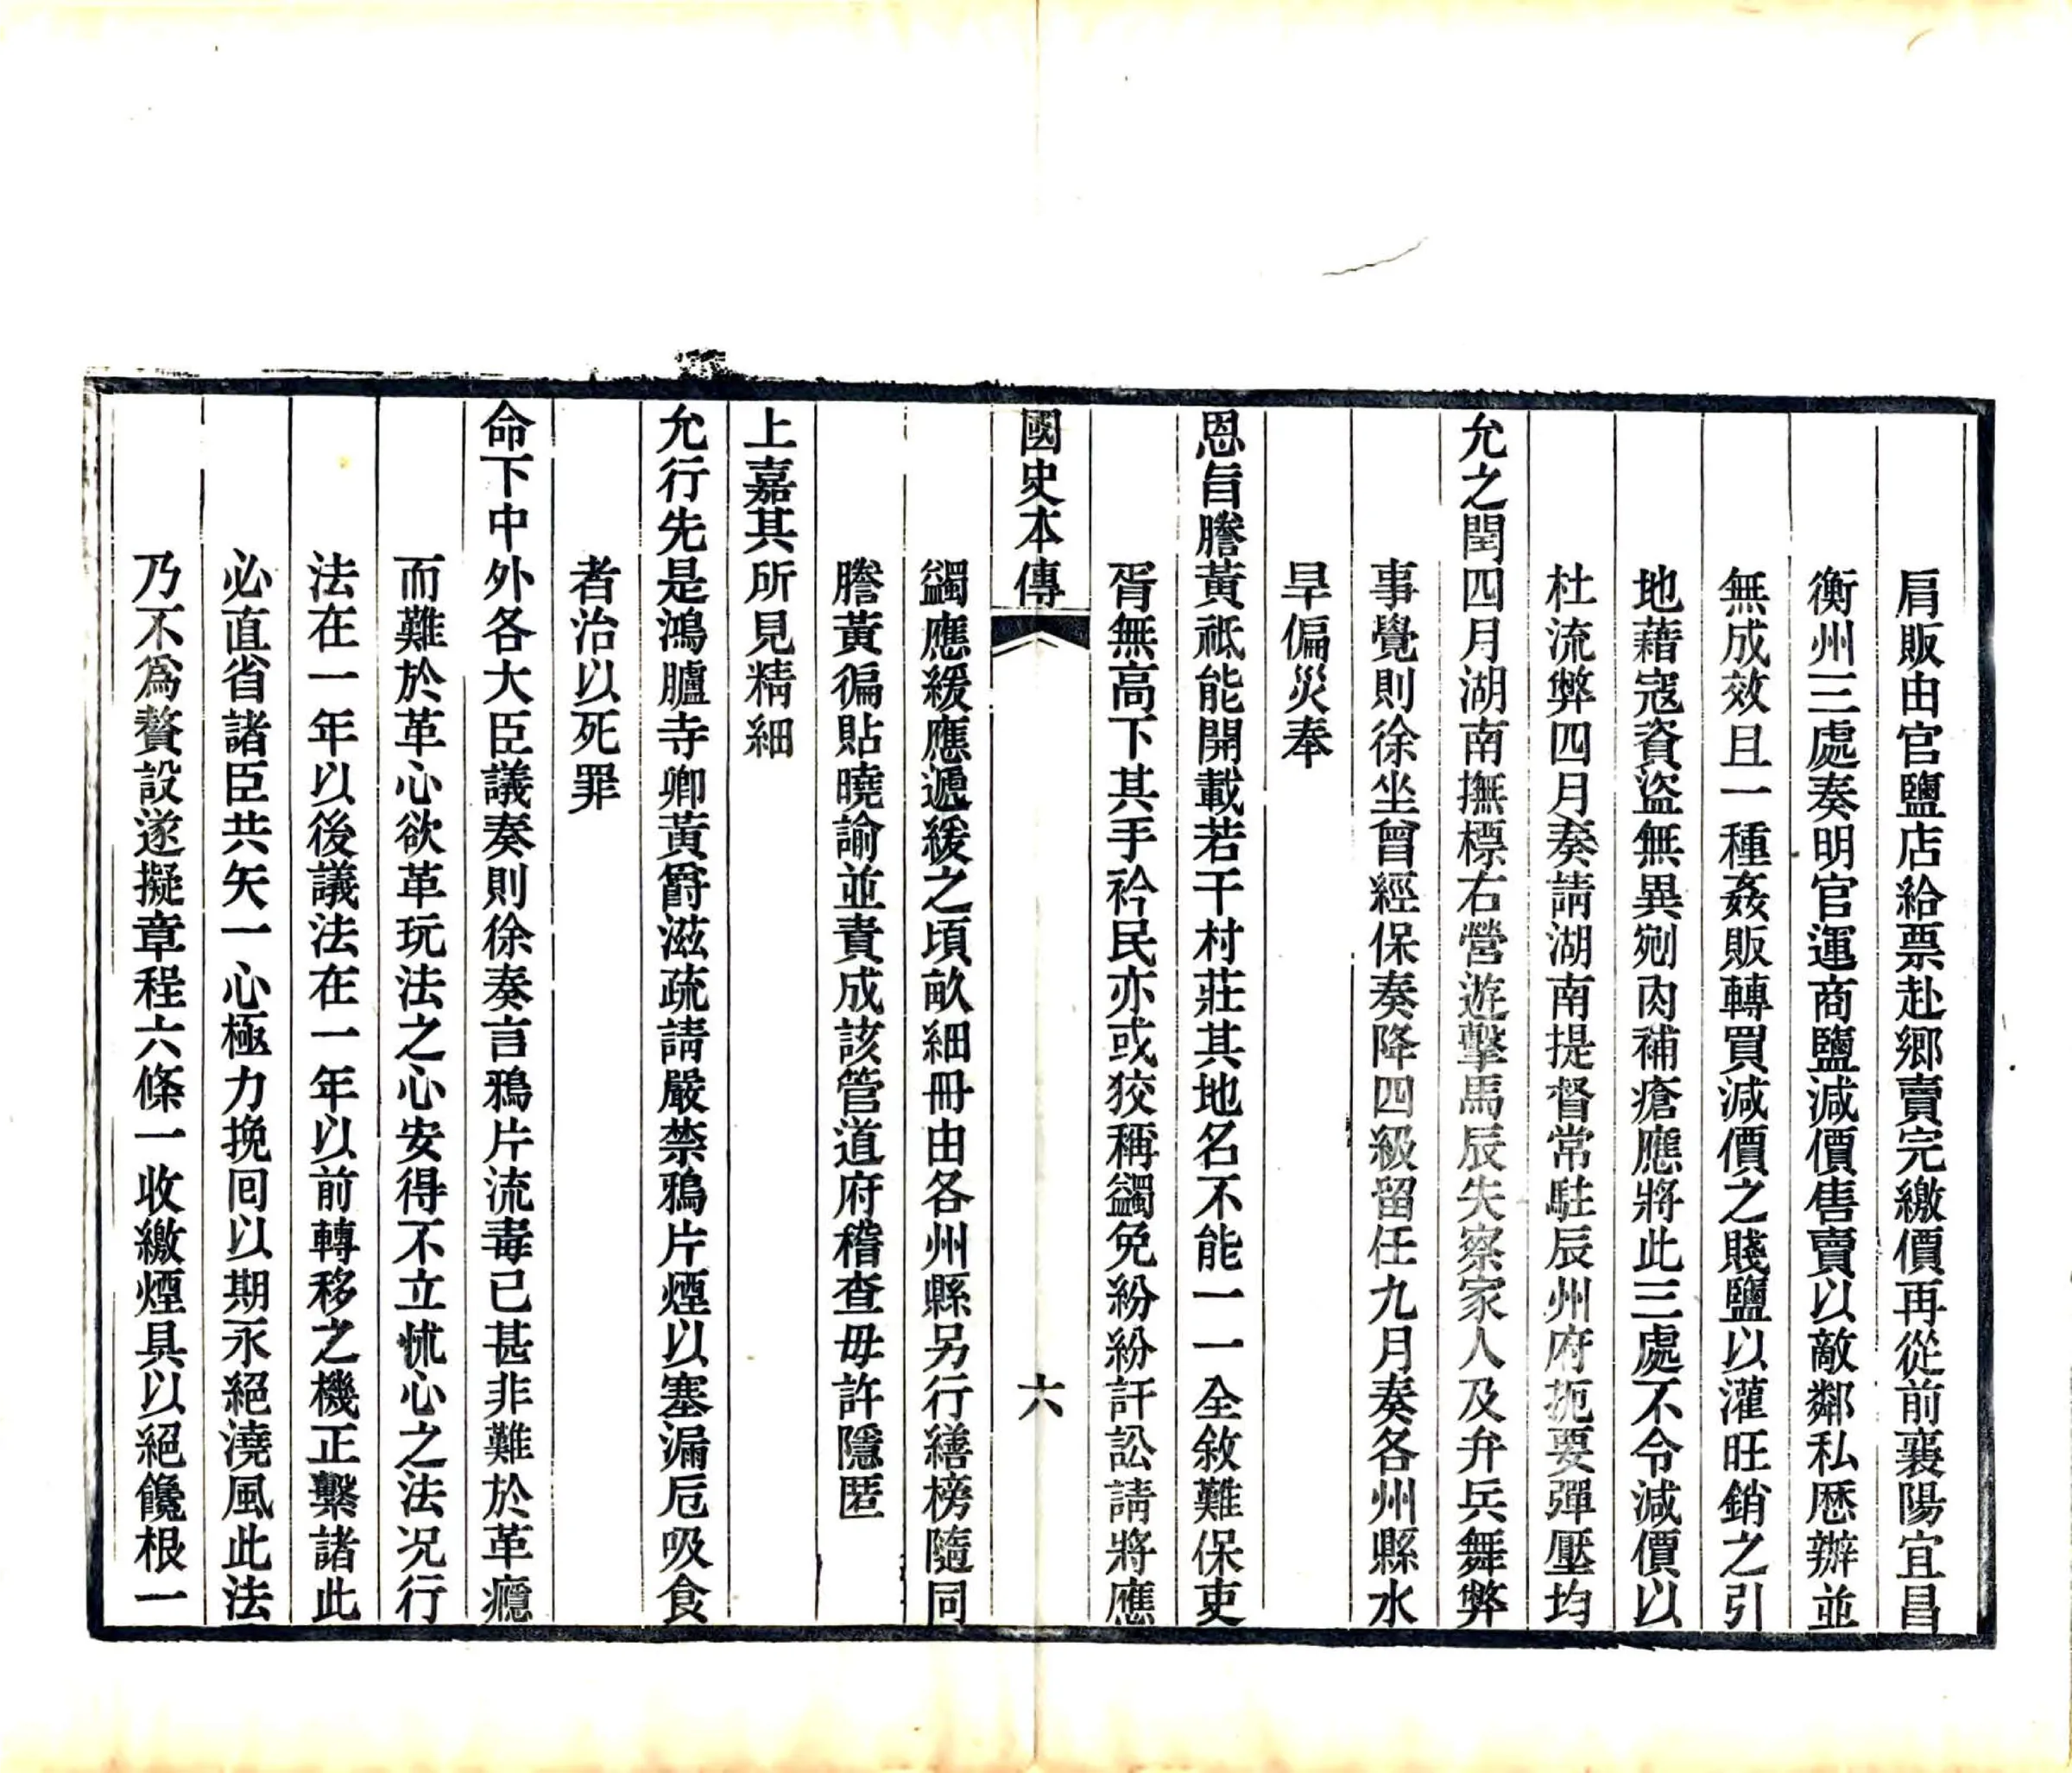 肩販由官鹽店給票赴鄉賣完繳價再從前襄陽宜昌
衡州三處奏明官運商鹽減價售賣以敵鄰私厯辦並
無成效且一種姦販轉買減價之賤鹽以灌旺銷之引
地藉寇資盜無異剜肉補瘡應將此三處不令減價以
杜流弊四月奏請湖南提督常駐辰州府扼要彈壓均
允之閏四月湖南撫標右營遊擊馬辰失察家人及弁兵舞弊
事覺則徐坐曾經保奏降四級留任九月奏各州縣水
旱偏災奉
恩旨謄黃祇能開載若干村莊其地名不能一一全敘難保吏
胥無高下其手衿民亦或狡稱蠲免紛紛訐訟請將應
國史本傳
六
蠲應緩應遞緩之頃畝細冊由各州縣另行繕榜隨同
謄黃徧貼曉諭並責成該管道府稽查毋許隱匿
上嘉其所見精細
允行先是鴻臚寺卿黃爵滋疏請嚴禁鴉片煙以塞漏卮吸食
者治以死罪
命下中外各大臣議奏則徐奏言鴉片流毒已甚非難於革癮
而難於革心欲革玩法之心安得不立怵心之法况行
法在一年以後議法在一年以前轉移之機正繫諸此
必直省諸臣共矢一心極力挽回以期永絕澆風此法
乃不爲贅設遂擬章程六條一收繳煙具以絕饞根一